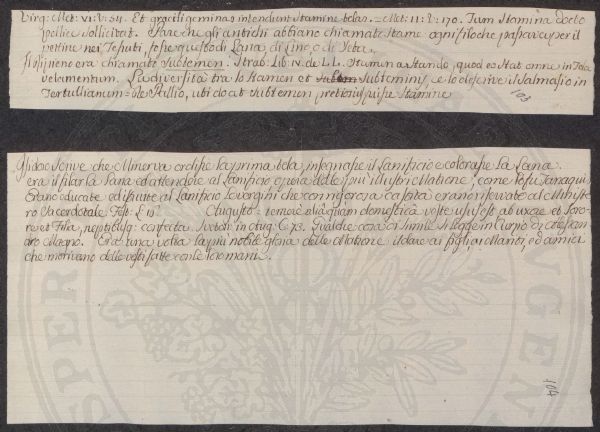 Virg: Met: VI: V: 54. Et gracili geminas intendunt stamine telas. = Met: 11: V: 170. Tum stamina docto
pollice sollicitat. Pare che gli antichi abbiano chiamato stame ogni filo che passava per il
pettine nei Tessuti, fosse questo di Lana, di Lino, o di Seta.
Il ripieno era chiamato Subtemen. Strab: Lib: IV. de L.L. Stamen a stando, quod eo stat omne in Tela
velamentum. La diversità tra lo Stamen et Subteminis, ce lo descrive il Salmasio in
Tertullianum = De Pallio, ubi docat subtemen pretiosius quisse Stamine
103
Isidoro scrive che Minerva ordisse la prima tela, insegnasse il Lanificio e colorasse La Lana
era il filar la Lana ed attendere al Lanificio opera delle più illustri Matrone, come fosse Tanaquil
Erano educate ed istruite al Lanificio Le vergini che con rigorosa castità erano riservate al Ministe=
ro Sacerdotale. Fest: L: 12 Augusto = temere aliaquam domestica veste usus est ab uxore et Soro=
re et Filia, neptibusq: confecta. Sveton: in Aug: C: 73. Qualche cosa di simile si legge in Curzio di Alessan=
dro Magno. Era una volta la più nobile gloria delle Matrone il dare ai figli, ai Mariti, ed amici
che morivano delle vesti fatte con le loro mani.
104
SPER
NGEN